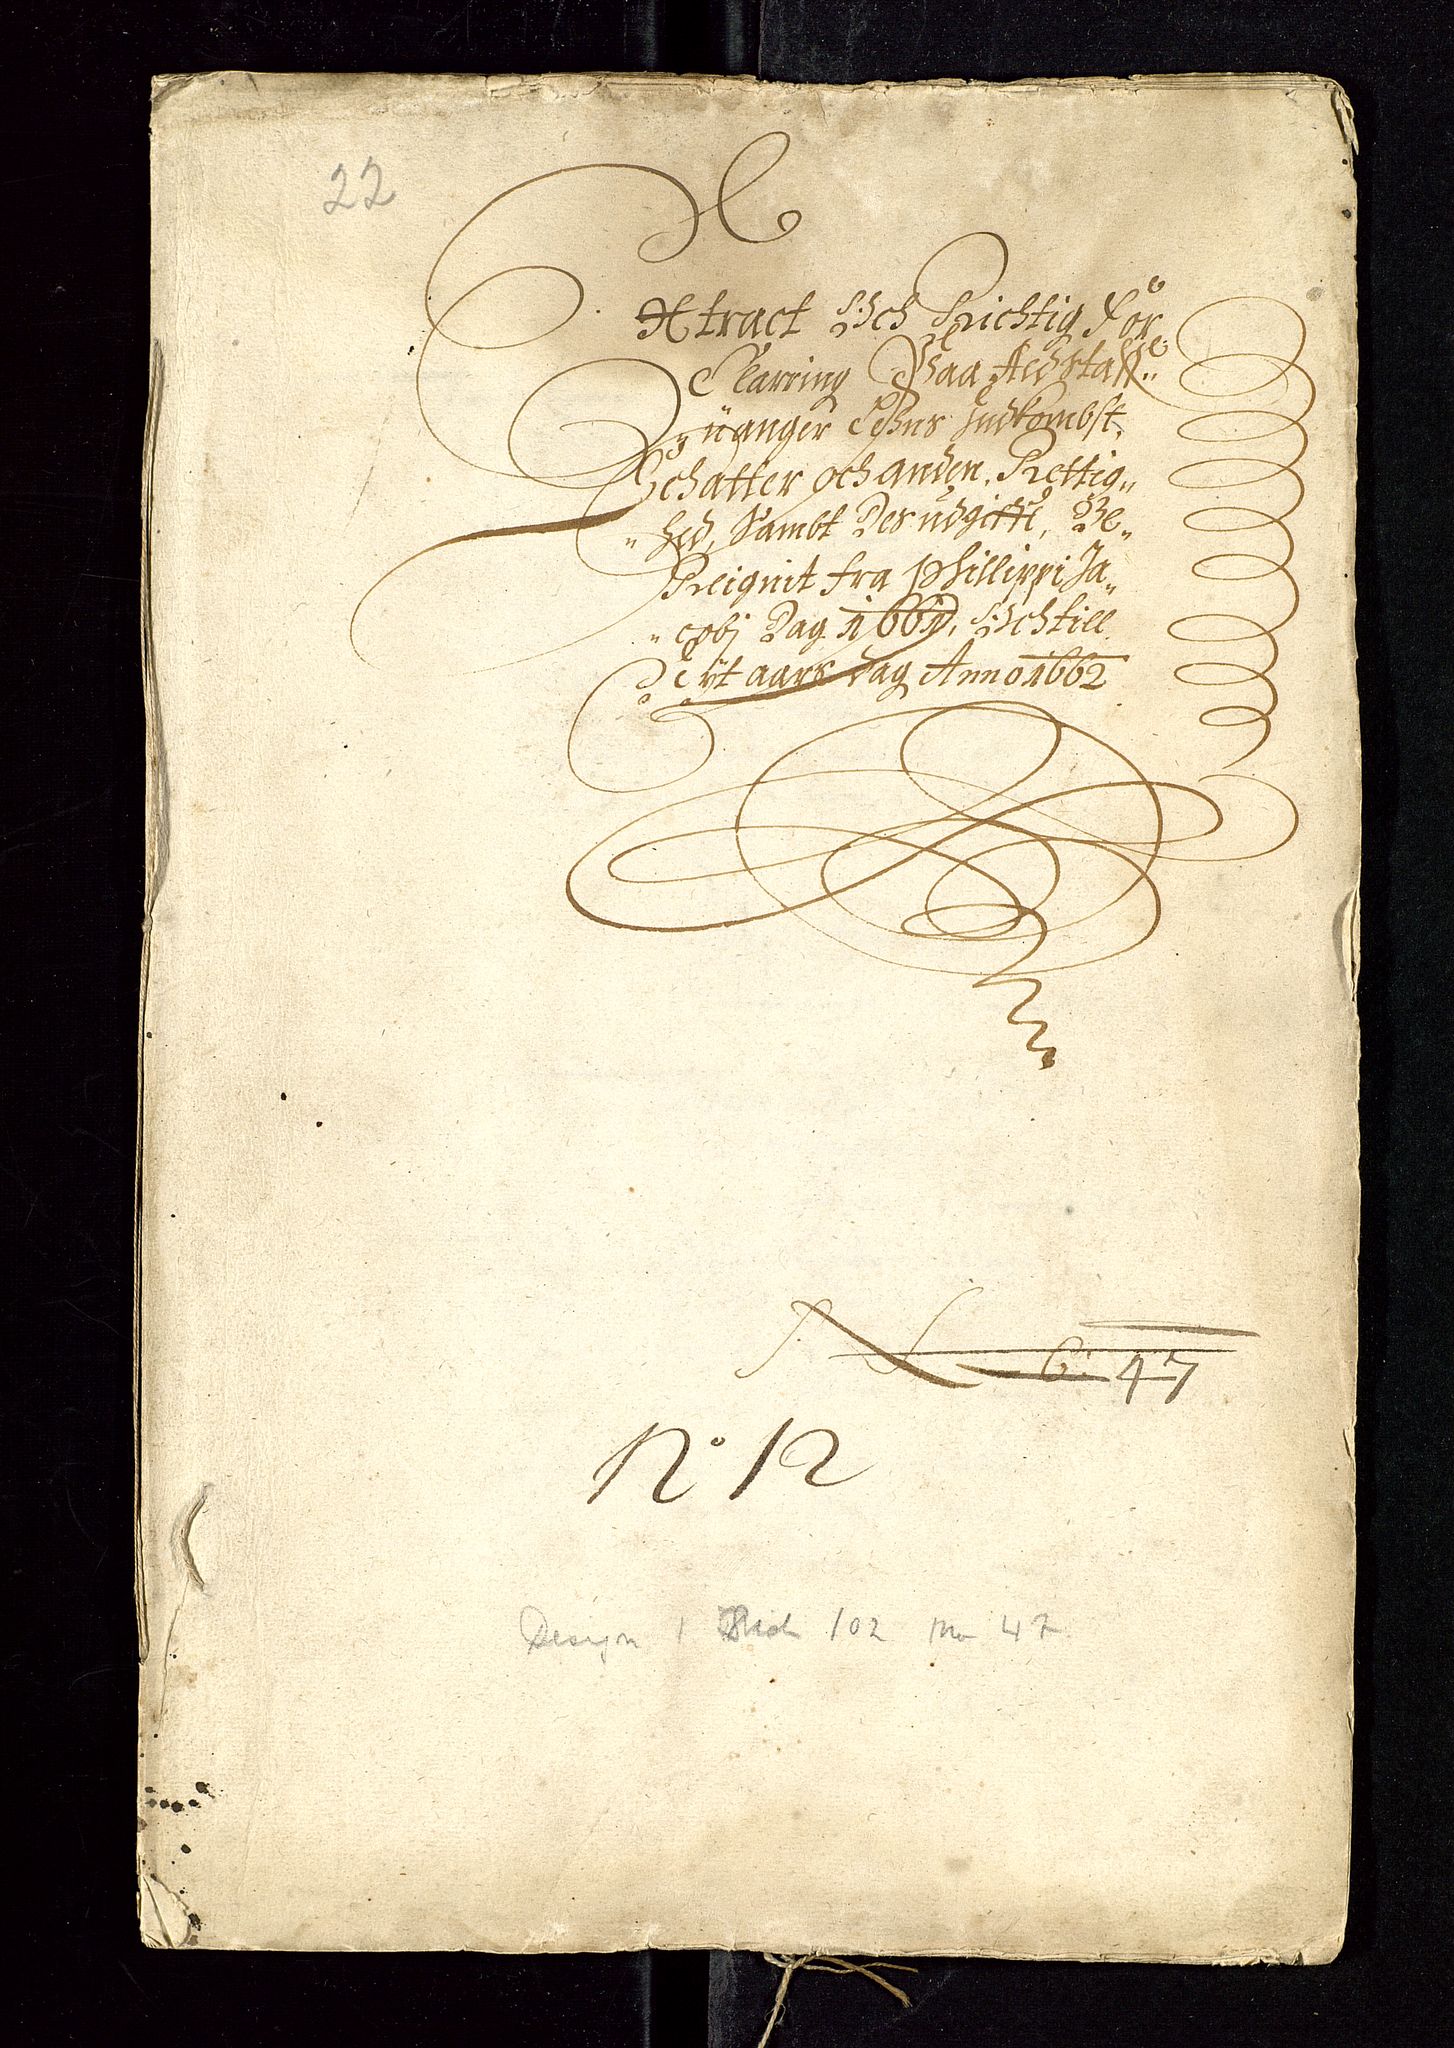 22
Extract Och Richtig For
Klarring Paa Aid Staff„
„uanger Lehns Indkombst,
Schatter och anden, Rettig„
„hed, Sambt Des udgifft, Be„
Reignit fra Phillippi Ja„
„cobj Dag 1661, Och till
Aars dag Anno 1662
No 12
6. 47
Design 102 No 47